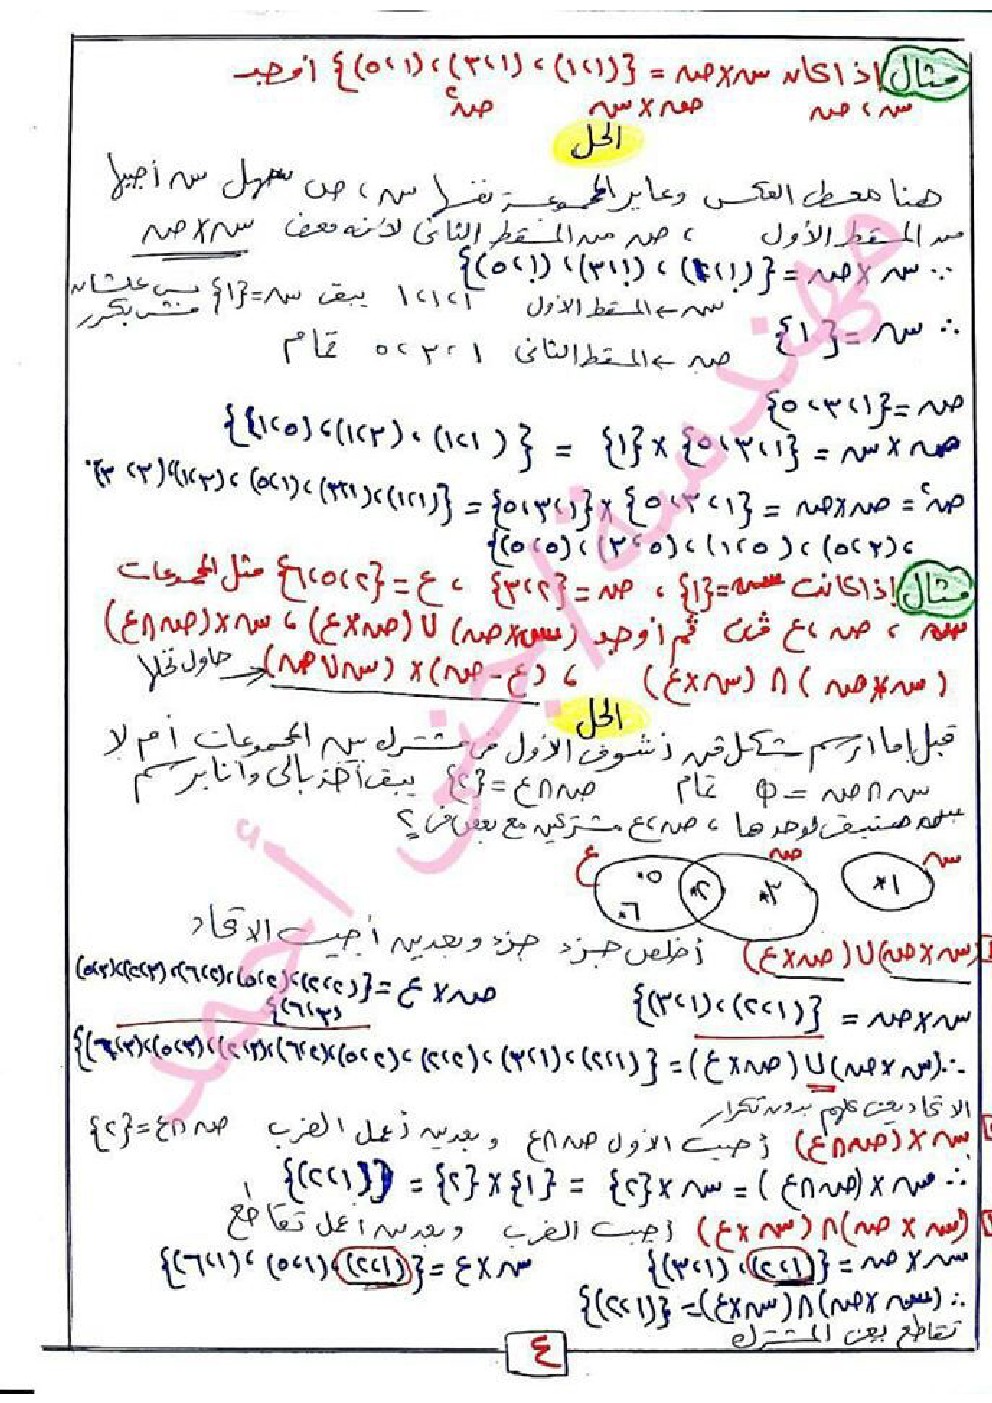 مثال اذا كانت سـ × صـ = {(١،١)، (٣،١)، (٥،١)} أوجد
سـ ، صـ    صـ × سـ    صـ²
الحل
هنا معطى العكس وعايز المجموعة نفسها سـ ، صـ سهل سـ أجيبها
من المسقط الأول ، صـ من المسقط الثانى لأنه معف سـ × صـ
∵ سـ × صـ = {(١،١)، (٣،١)، (٥،١)}
سـ ← المسقط الأول ١،١،١ يبقى سـ = {١} بس علشان مش بكرر
∴ سـ = {١}
صـ ← المسقط الثانى ١، ٣، ٥ تمام
صـ = {٥،٣،١}
صـ × سـ = {٥،٣،١} × {١} = {(١،١)، (١،٣)، (١،٥)}
صـ² = صـ × صـ = {٥،٣،١} × {٥،٣،١} = {(١،١)، (٣،١)، (٥،١)، (١،٣)، (٣،٣)،
، (٥،٣)، (١،٥)، (٣،٥)، (٥،٥)}
مثال إذا كانت سـ = {١} ، صـ = {٣،٢} ، ع = {٦،٥،٢} مثل المجموعات
سـ ، صـ ، ع ڤن ثم أوجد (سـ × صـ) ∪ (صـ × ع) ، سـ × (صـ ∩ ع)
(سـ × صـ) ∩ (سـ × ع) ، (ع - صـ) × (سـ ∪ صـ) ← حاول تحلها
الحل
قبل ما ارسم شكل ڤن أشوف الأول فى مشترك بين المجموعات أم لا
سـ ∩ صـ = Φ تمام صـ ∩ ع = {٢} يبقى آخذ بالى وأنا برسم
سـ هتبقى لوحدها ، صـ ، ع مشتركين مع بعض فى ٢
سـ صـ ع
١ ٣ ٢ ٥ ٦
(سـ × صـ) ∪ (صـ × ع) أخلص جزء جزء وبعدين أجيب الاتحاد
سـ × صـ = {(٢،١)، (٣،١)} صـ × ع = {(٢،٢)، (٥،٢)، (٦،٢)، (٢،٣)، (٥،٣)
(٦،٣)}
∴ (سـ × صـ) ∪ (صـ × ع) = {(٢،١)، (٣،١)، (٢،٢)، (٥،٢)، (٦،٢)، (٢،٣)، (٥،٣)، (٦،٣)}
الاتحاد يعنى كلهم بدون تكرار
سـ × (صـ ∩ ع) أجيب الأول صـ ∩ ع وبعدين أعمل الضرب صـ ∩ ع = {٢}
∴ سـ × (صـ ∩ ع) = سـ × {٢} = {١} × {٢} = {(٢،١)}
(سـ × صـ) ∩ (سـ × ع) أجيب الضرب وبعدين أعمل تقاطع
سـ × صـ = {(٢،١)، (٣،١)} سـ × ع = {(٢،١)، (٥،١)، (٦،١)}
∴ (سـ × صـ) ∩ (سـ × ع) = {(٢،١)}
تقاطع يعنى المشترك
٤